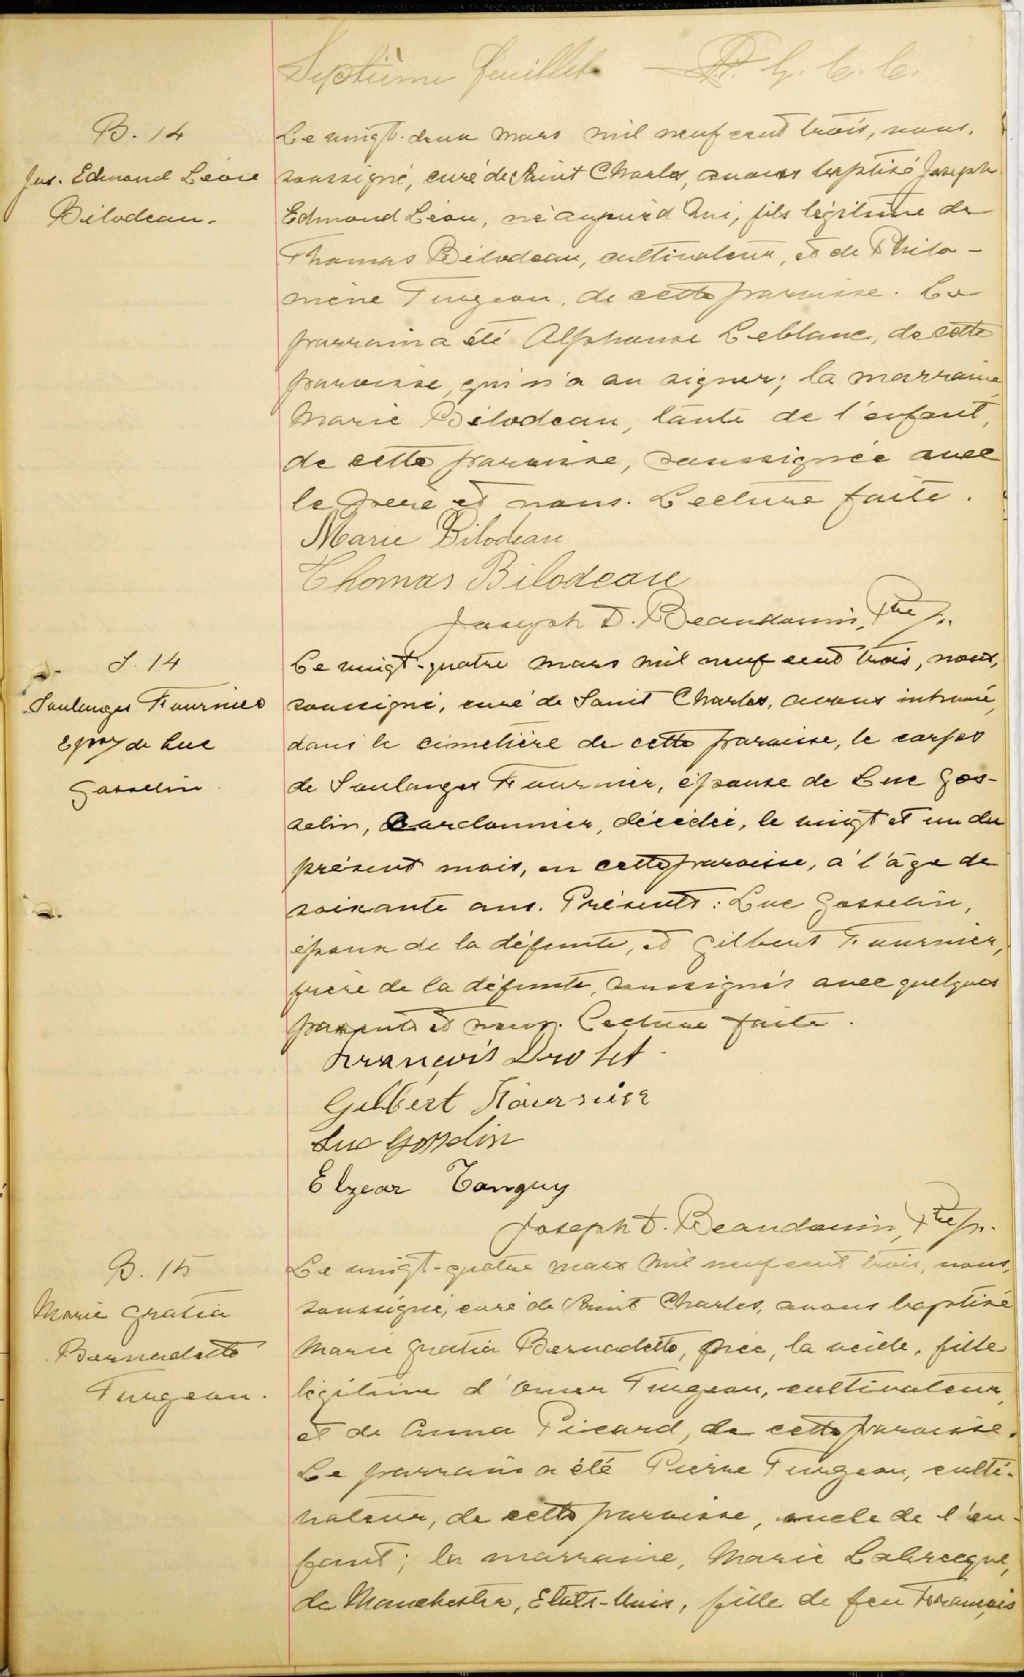 Septième feuillet P. G. C. C.
B. 14
Jos. Edmond Léon
Bilodeau.
Le vingt-deux mars mil neuf cent trois, nous,
soussigné, curé de Saint Charles, avons baptisé Joseph
Edmond Léon, né aujourd'hui, fils légitime de
Thomas Bilodeau, cultivateur, et de Philo-
mène Turgeon, de cette paroisse. Le
parrain a été Alphonse Leblanc, de cette
paroisse, qui n'a su signer; la marraine,
Marie Bilodeau, tante de l'enfant,
de cette paroisse, soussignée avec
le père et nous. Lecture faite.
Marie Bilodeau
Thomas Bilodeau
Joseph D. Beaudouin, Ptre
S. 14
Soulanges Fournier
Epse de Luc
Gosselin
Le vingt-quatre mars mil neuf cent trois, nous,
soussigné, curé de Saint Charles, avons inhumé,
dans le cimetière de cette paroisse, le corps
de Soulanges Fournier, épouse de Luc Gos-
selin, cordonnier, décédée, le vingt et un du
présent mois, en cette paroisse, à l'âge de
soixante ans. Présents: Luc Gosselin,
époux de la défunte, et Gilbert Fournier,
frère de la défunte, soussignés avec quelques
parents et nous. Lecture faite.
François Drolet
Gilbert Fournier
Luc Gosselin
Elzear Tanguy
Joseph D. Beaudouin, Ptre
B. 15
Marie Gratia
Bernadette
Turgeon.
Le vingt-quatre mars mil neuf cent trois, nous,
soussigné, curé de Saint Charles, avons baptisé
Marie Gratia Bernadette, née, la veille, fille
légitime d'Omer Turgeon, cultivateur,
et de Anna Picard, de cette paroisse.
Le parrain a été Pierre Turgeon, culti-
vateur, de cette paroisse, oncle de l'en-
fant; la marraine, Marie Labrecque,
de Manchester, Etats-Unis, fille de feu François